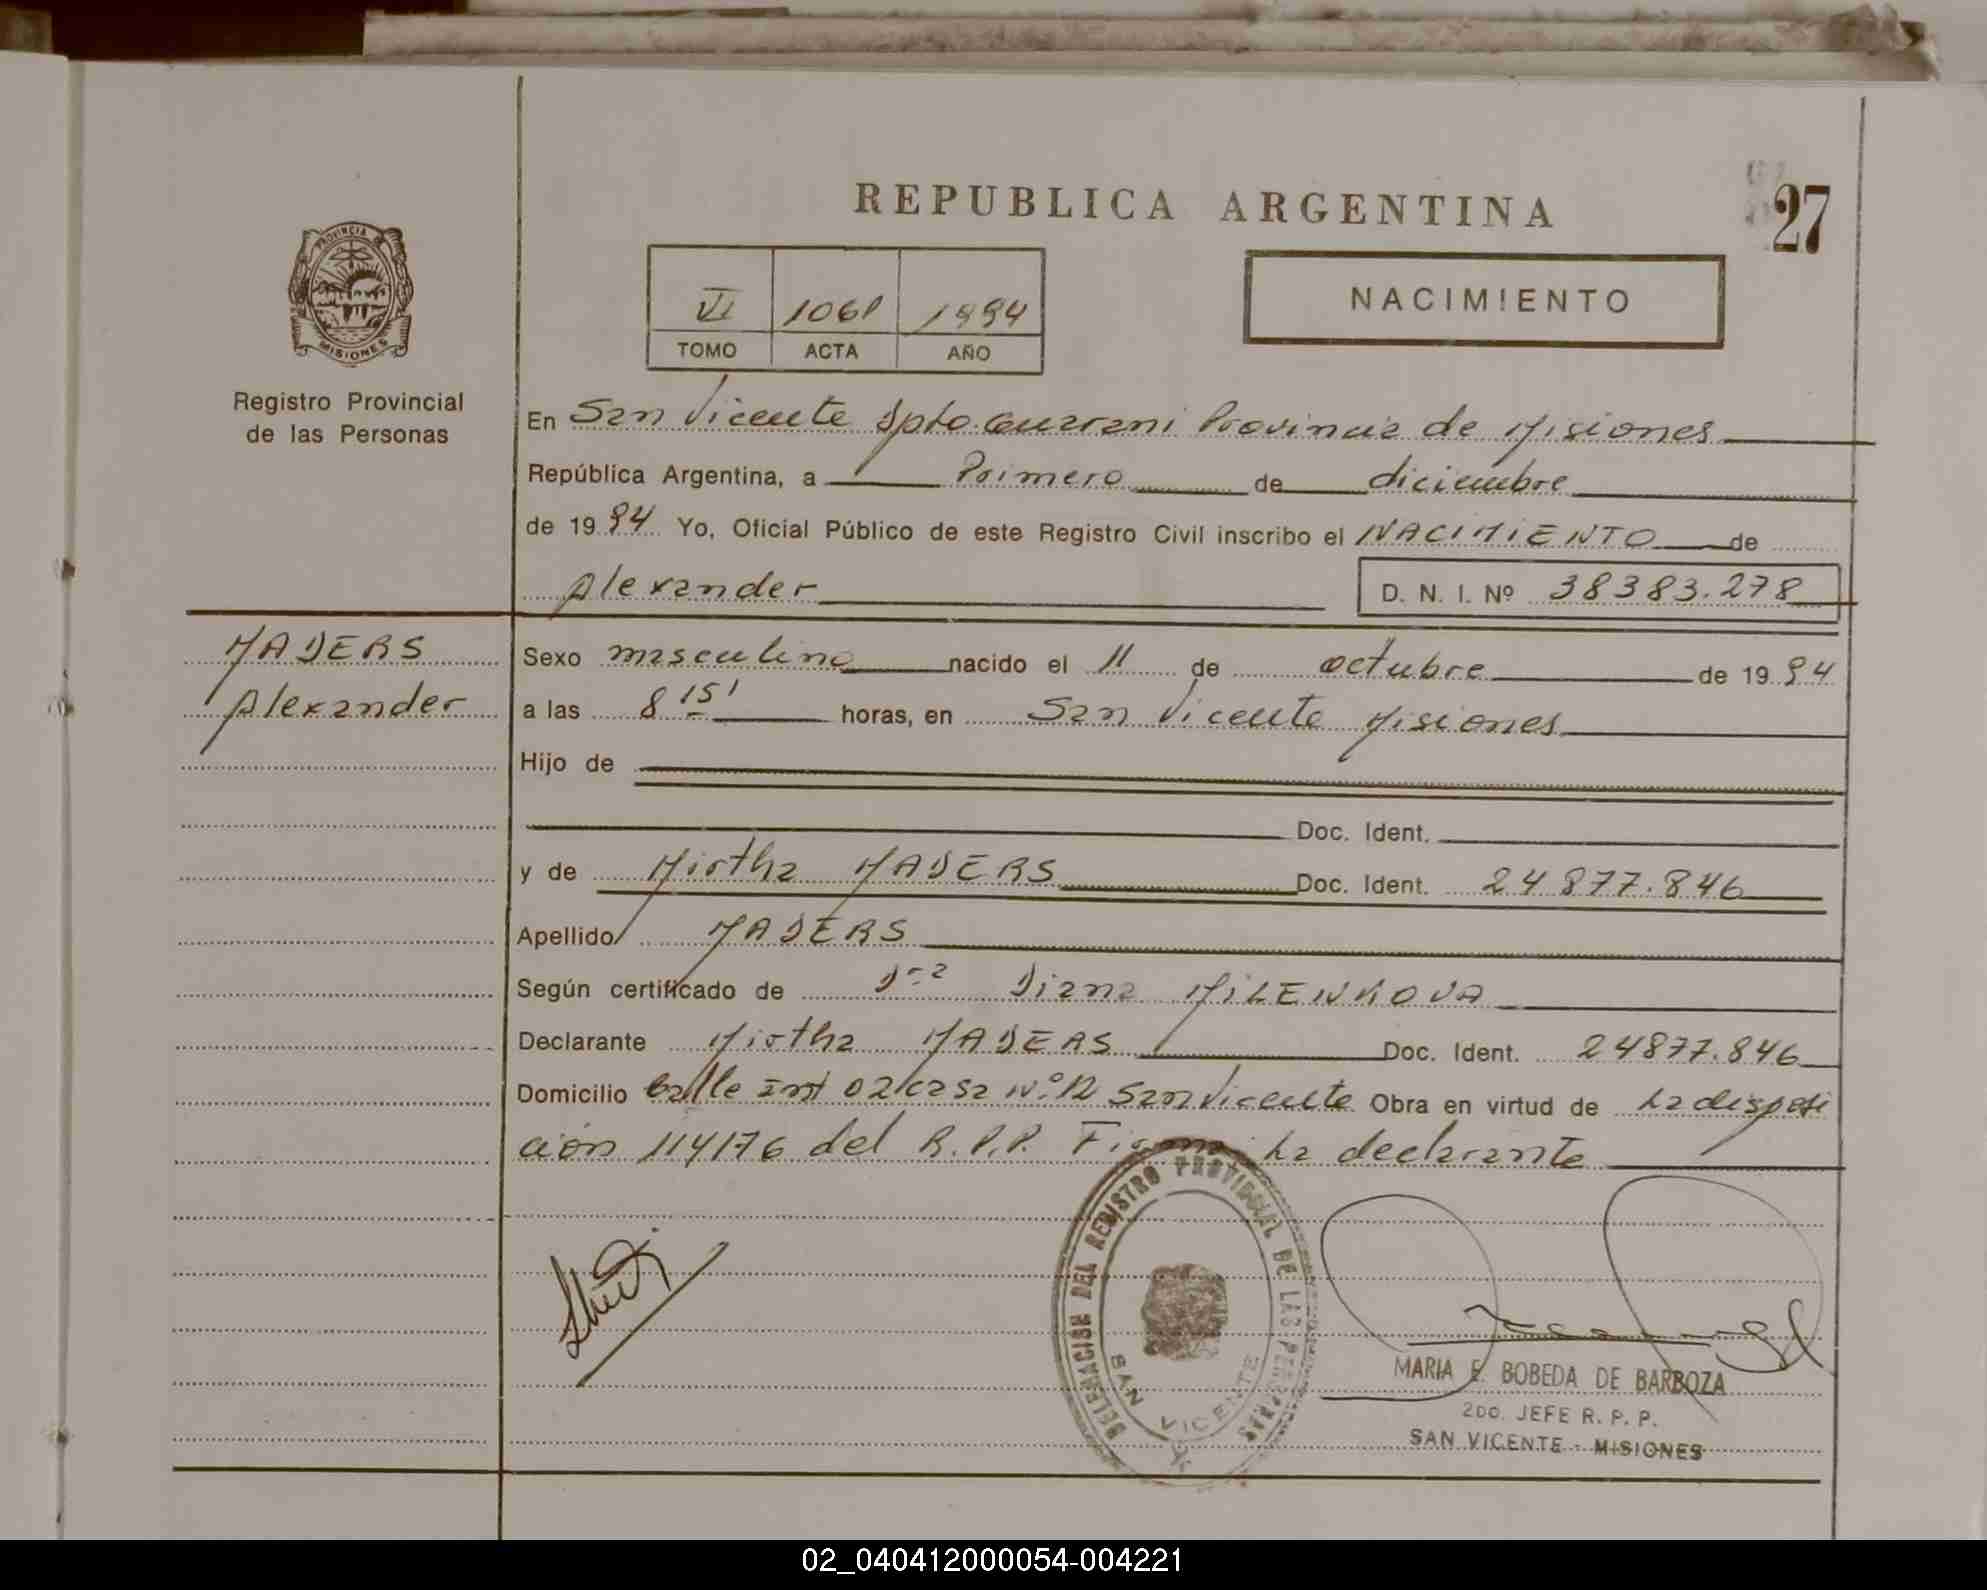 REPUBLICA ARGENTINA
27
PROVINCIA DE
MISIONES
Registro Provincial
de las Personas
VI 1061 1994
TOMO ACTA AÑO
NACIMIENTO
En San Vicente Dpto. Guarani Provincia de Misiones
República Argentina, a Primero de diciembre
de 1994 Yo, Oficial Público de este Registro Civil inscribo el NACIMIENTO de
Alexander D. N. I. Nº 38383.278
MADERS
Alexander
Sexo masculino nacido el 11 de octubre de 1994
a las 8 15' horas, en San Vicente Misiones
Hijo de
Doc. Ident.
y de Mirtha MADERS Doc. Ident. 24877.846
Apellido MADERS
Según certificado de Dra Diana MILENKOVA
Declarante Mirtha MADERS Doc. Ident. 24877.846
Domicilio Calle Int 02 casa Nº 12 San Vicente Obra en virtud de La disposi
ción 114176 del R.P.P. Firma La declarante
DELEGACION DEL REGISTRO PROVINCIAL DE LAS PERSONAS
SAN VICENTE
MARIA E. BOBEDA DE BARBOZA
2DO. JEFE R. P. P.
SAN VICENTE - MISIONES
02_040412000054-004221